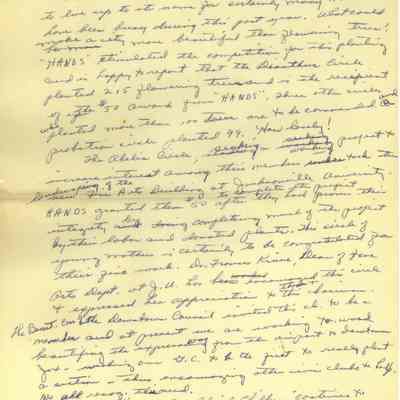 to live up to its name for certainly many
have been busy during this past year. What could
make a city more beautiful than flowering trees!
"HANDS" stimulated the competition for this planting
and is happy to report that the Dianthus Circle
planted 215 flowering trees and is the recipient
of the $50 award from "HANDS". Three other circles
planted more than 100 trees are to be commended &
probation circle planted 99. How lovely!
The Abelia Circle, seeking project to
increase interest among their members took the
landscaping of the Fine Arts Building at Jacksonville University.
HANDS granted them $50 to complete the project
after they had proven their
integrity by completing much of the project
by their labor and donated plants. This circle of
young mothers is certainly to be congratulated for
their fine work. Dr. Frances Kinne, Dean of Fine
Arts Dept. at J.U. has this circle
& expressed her appreciation to the chairman.
The Beaut. Com. of the Downtown Council invited this ch. to be a
member and at present we are working toward
beautifying the expressway from the airport to downtown
Jax - working our G.C. to be the first to really plant
a section - thus encouraging other civic clubs to help.